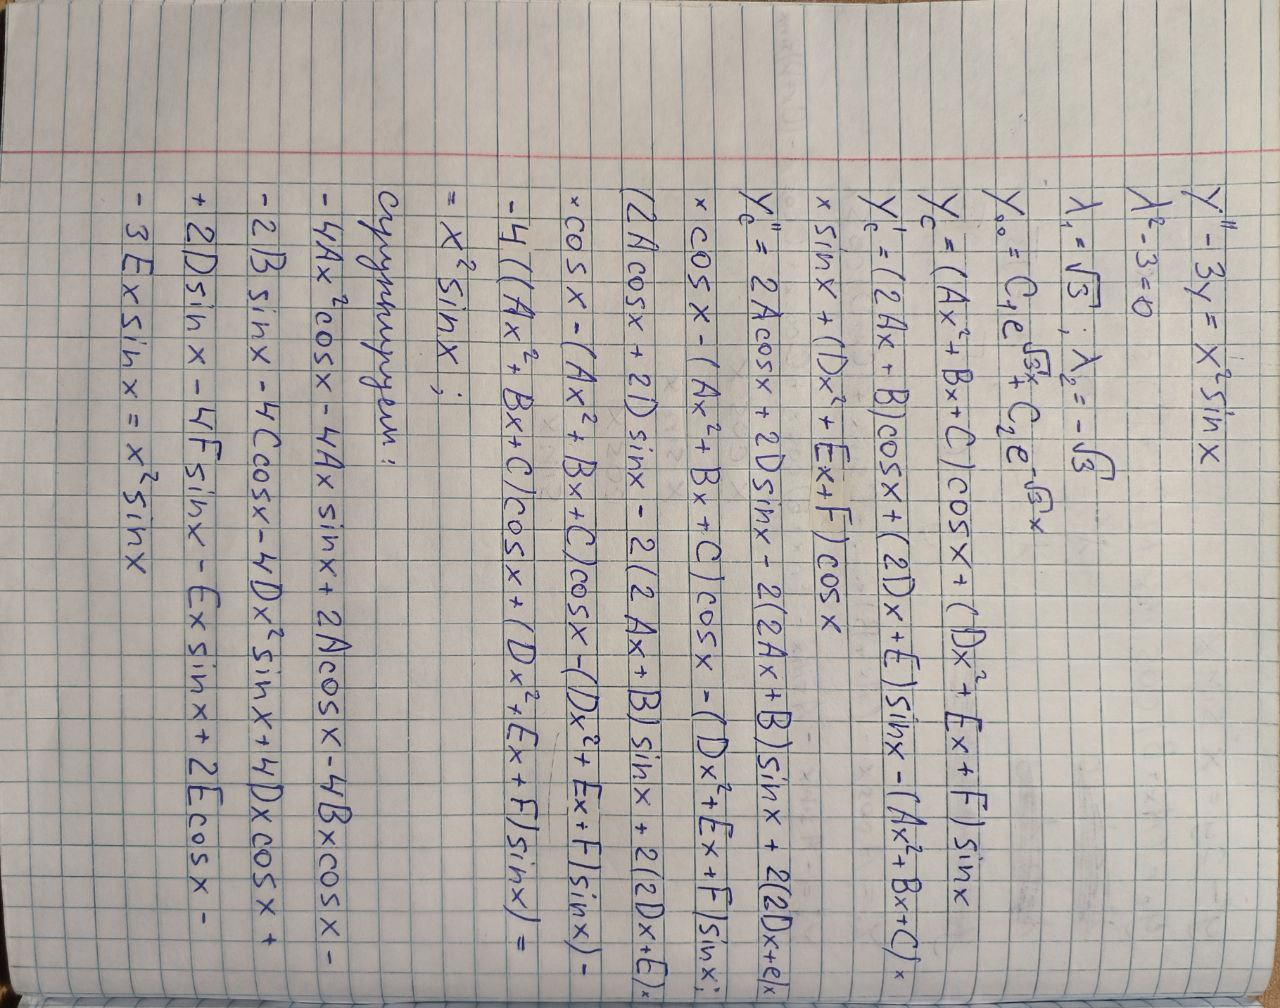 y'' - 3y = x² sin x
λ² - 3 = 0
λ₁ = √3 ; λ₂ = -√3
y₀₀ = C₁e^{√3x} + C₂e^{-√3x}
y_c = (Ax² + Bx + C) cos x + (Dx² + Ex + F) sin x
y_c' = (2Ax + B) cos x + (2Dx + E) sin x - (Ax² + Bx + C) ×
× sin x + (Dx² + Ex + F) cos x
y_c'' = 2A cos x + 2D sin x - 2(2Ax + B) sin x + 2(2Dx + e) ×
× cos x - (Ax² + Bx + C) cos x - (Dx² + Ex + F) sin x;
(2A cos x + 2D sin x - 2(2Ax + B) sin x + 2(2Dx + E) ×
× cos x - (Ax² + Bx + C) cos x - (Dx² + Ex + F) sin x) -
- 4((Ax² + Bx + C) cos x + (Dx² + Ex + F) sin x) =
= x² sin x ;
Группируем:
- 4Ax² cos x - 4Ax sin x + 2A cos x - 4Bx cos x -
- 2B sin x - 4C cos x - 4Dx² sin x + 4Dx cos x +
+ 2D sin x - 4F sin x - Ex sin x + 2E cos x -
- 3Ex sin x = x² sin x